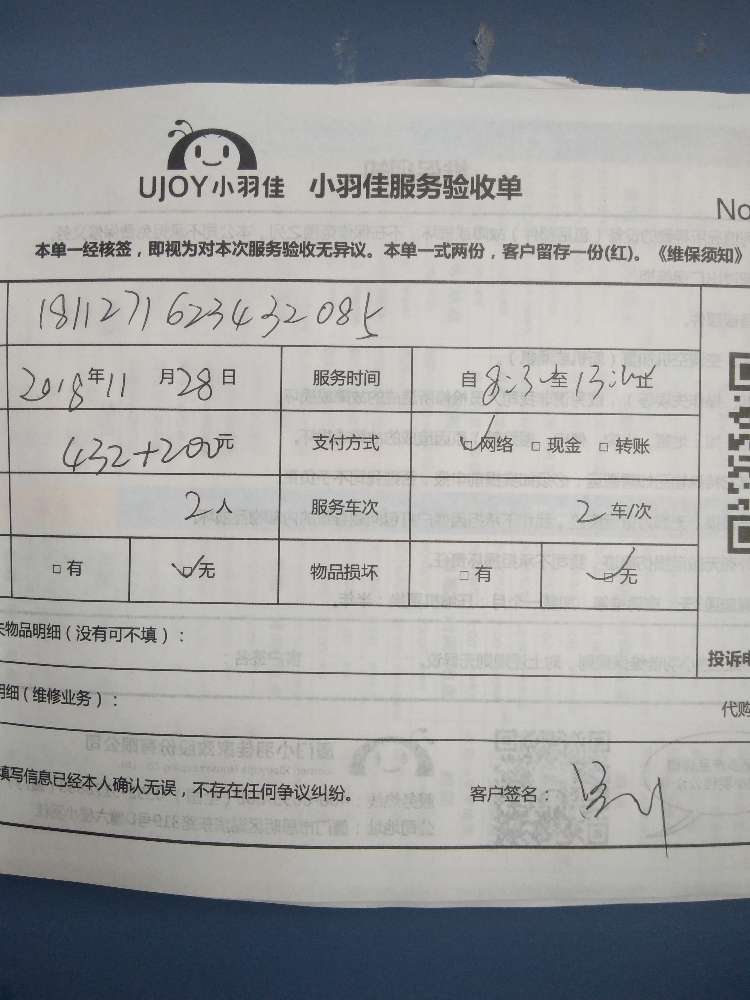 UJOY小羽佳 小羽佳服务验收单
No
本单一经核签，即视为对本次服务验收无异议。本单一式两份，客户留存一份(红)。《维保须知》
181127162343208
2018年11月28日 服务时间 自8:3 至13: 止
432+200元 支付方式 ☑网络 □现金 □转账
2人 服务车次 2车/次
□有 ☑无 物品损坏 □有 ☑无
物品明细（没有可不填）：
投诉电
明细（维修业务）：
代购
填写信息已经本人确认无误，不存在任何争议纠纷。 客户签名：